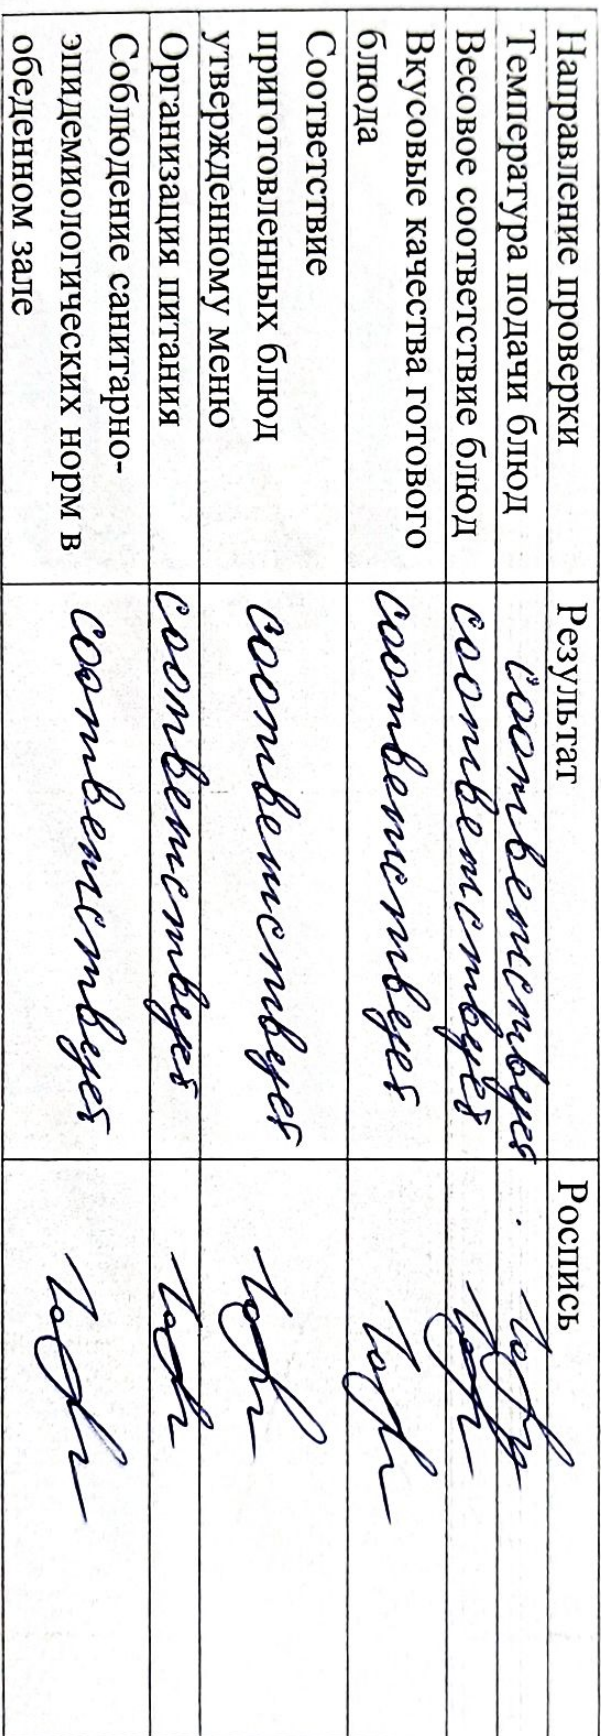 Направление проверки Результат Роспись
Температура подачи блюд соответствует
Весовое соответствие блюд соответствует
Вкусовые качества готового соответствует
блюда
Соответствие
приготовленных блюд соответствует
утвержденному меню
Организация питания соответствует
Соблюдение санитарно-
эпидемиологических норм в соответствует
обеденном зале